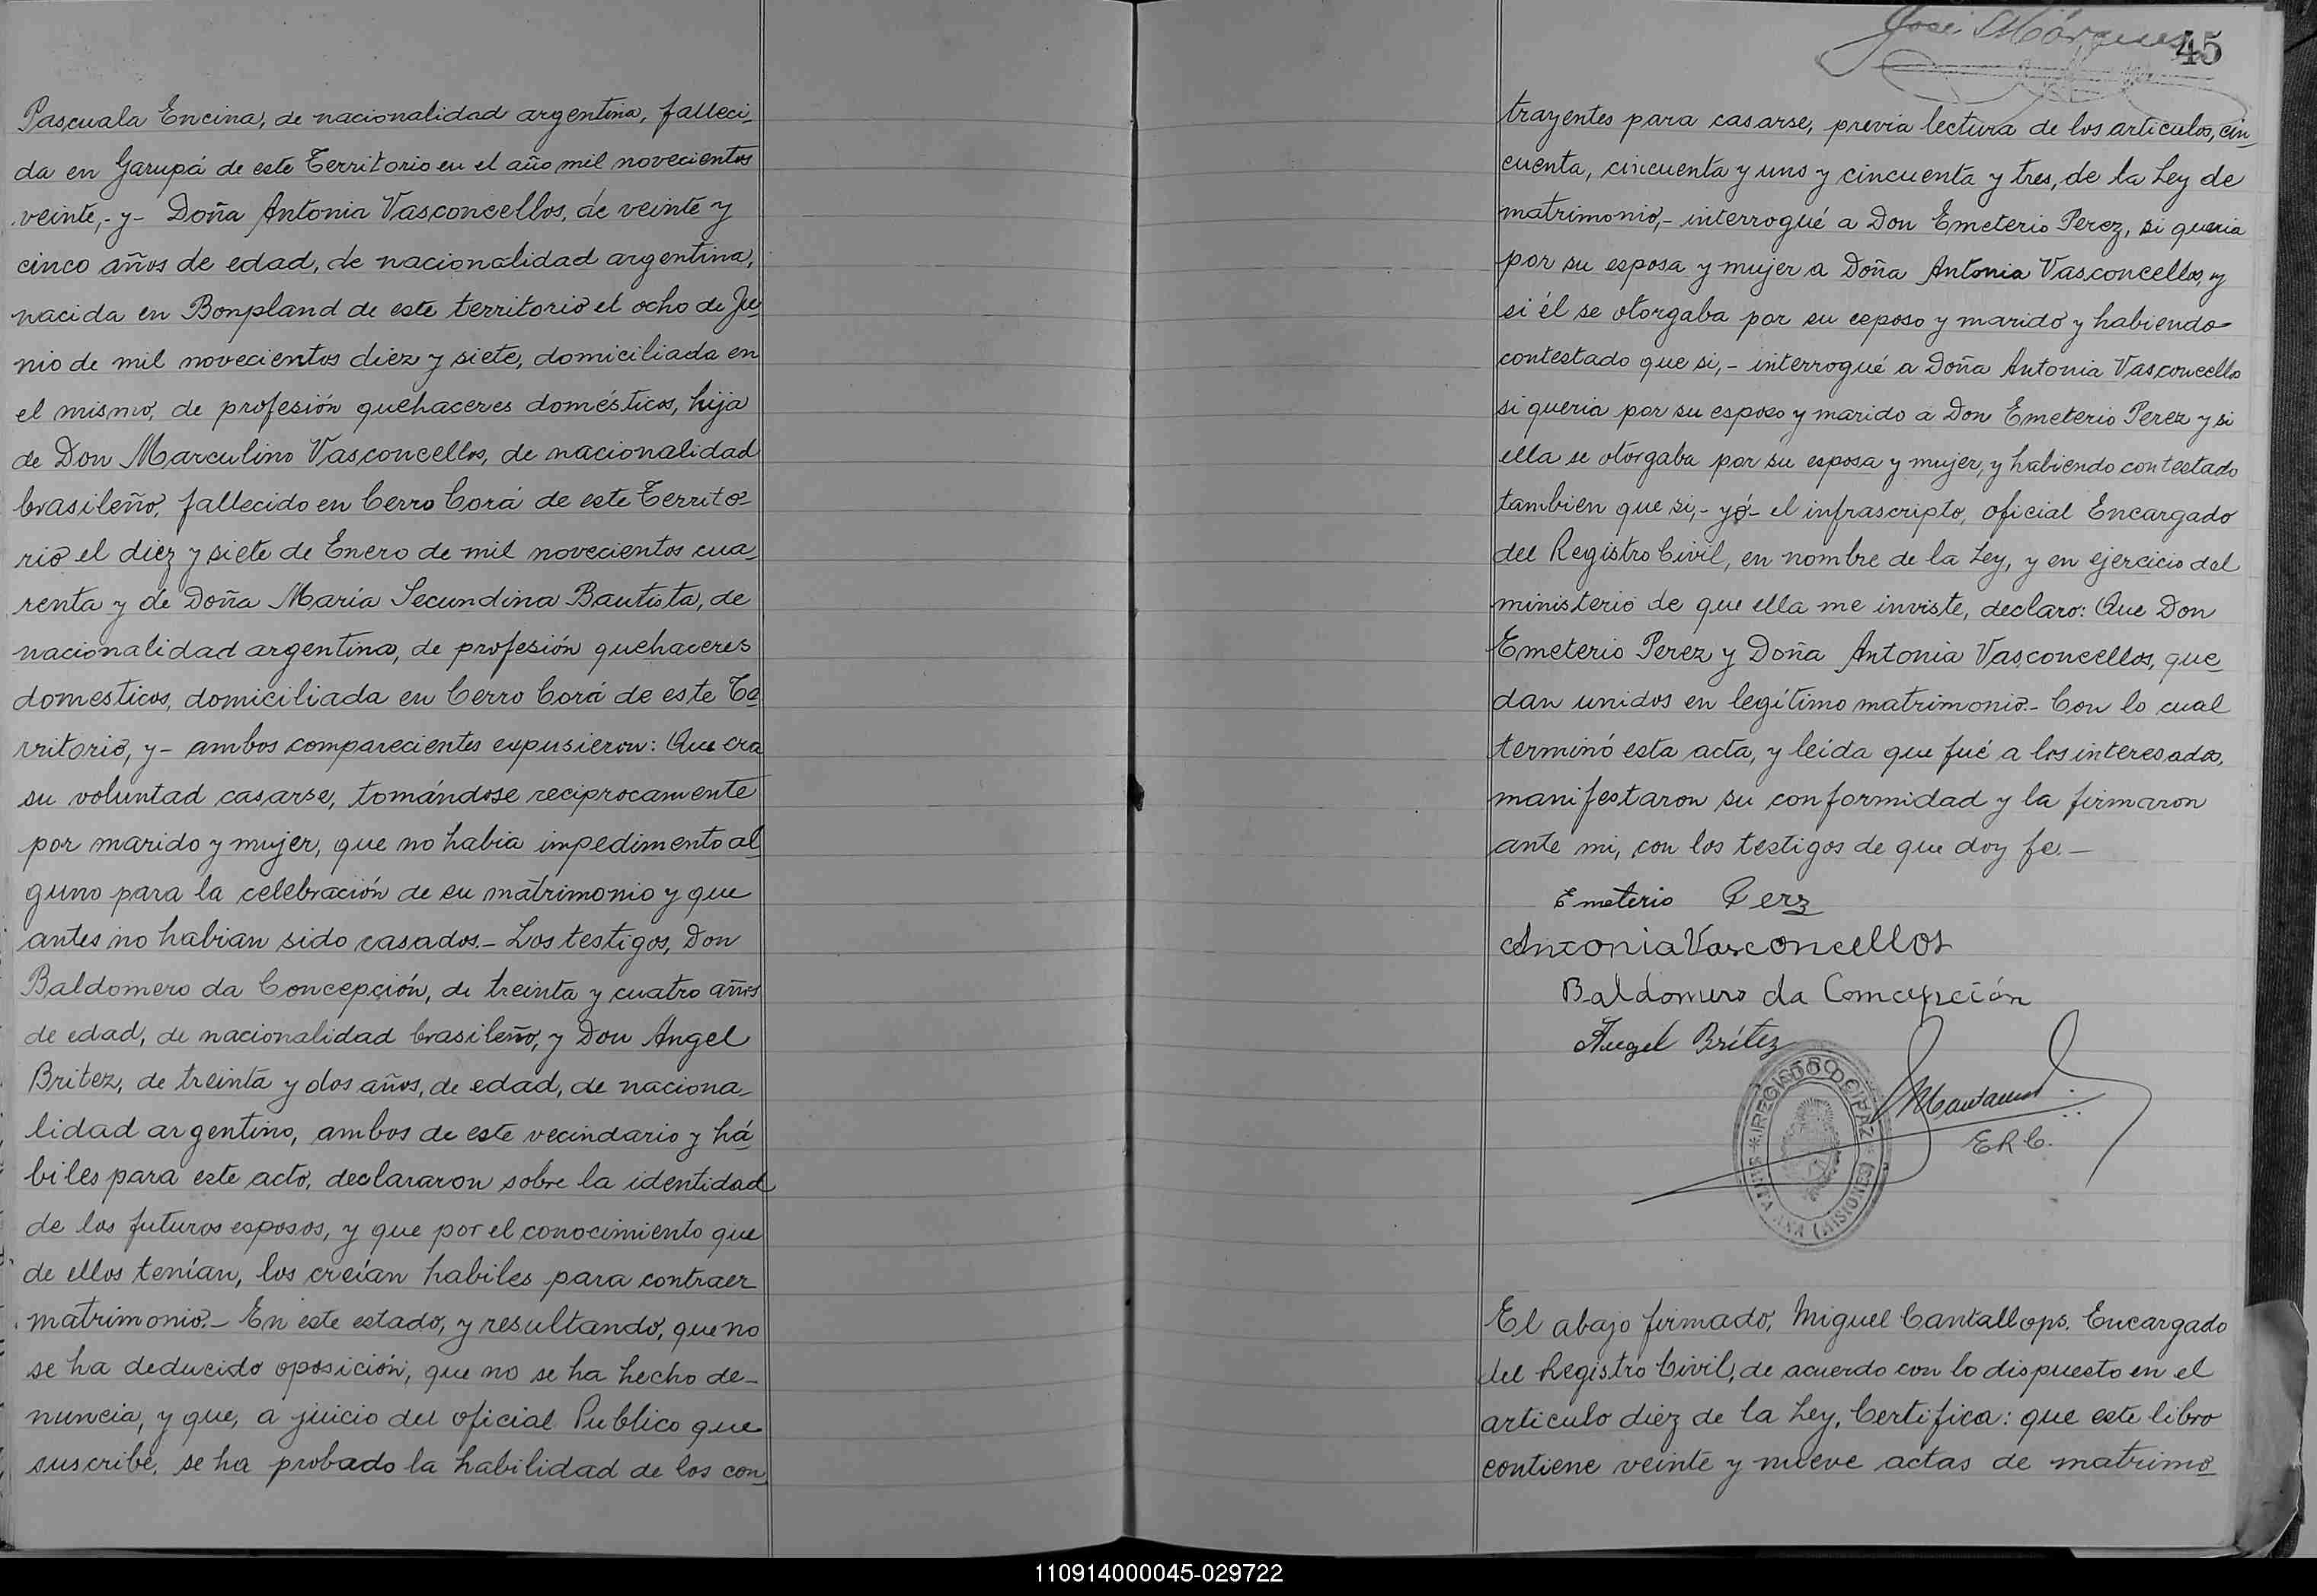 Pascuala Encina, de nacionalidad argentina, falleci-
da en Garupá de este Territorio en el año mil novecientos
veinte,- y- Doña Antonia Vasconcellos, de veinte y
cinco años de edad, de nacionalidad argentina,
nacida en Bonpland de este territorio el ocho de Ju-
nio de mil novecientos diez y siete, domiciliada en
el mismo, de profesión quehaceres domésticos, hija
de Don Marculino Vasconcellos, de nacionalidad
brasileño, fallecido en Cerro Corá de este Territo-
rio el diez y siete de Enero de mil novecientos cua-
renta y de Doña María Secundina Bautista, de
nacionalidad argentina, de profesión quehaceres
domesticos, domiciliada en Cerro Corá de este Te-
rritorio, y- ambos comparecientes expusieron: Que era
su voluntad casarse, tomándose reciprocamente
por marido y mujer, que no habia impedimento al-
guno para la celebración de su matrimonio y que
antes no habian sido casados.- Los testigos, Don
Baldomero da Concepción, de treinta y cuatro años
de edad, de nacionalidad brasileño, y Don Angel
Britez, de treinta y dos años, de edad, de naciona-
lidad argentino, ambos de este vecindario y há-
biles para este acto, declararon sobre la identidad
de los futuros esposos, y que por el conocimiento que
de ellos tenían, los creían habiles para contraer
matrimonio.- En este estado, y resultando, que no
se ha deducido oposición, que no se ha hecho de-
nuncia, y que, a juicio del oficial Publico que
suscribe, se ha probado la habilidad de los con-
José Márquez
45
trayentes para casarse, previa lectura de los articulos, cin-
cuenta, cincuenta y uno y cincuenta y tres, de la Ley de
matrimonio,- interrogué a Don Emeterio Perez, si queria
por su esposa y mujer a Doña Antonia Vasconcellos, y
si él se otorgaba por su esposo y marido y habiendo
contestado que si,- interrogué a Doña Antonia Vasconcello
si queria por su esposo y marido a Don Emeterio Perez y si
ella se otorgaba por su esposa y mujer, y habiendo contestado
tambien que si,- yó- el infrascripto, oficial Encargado
del Registro Civil, en nombre de la Ley, y en ejercicio del
ministerio de que ella me inviste, declaro: Que Don
Emeterio Perez y Doña Antonia Vasconcellos, que-
dan unidos en legítimo matrimonio.- Con lo cual
terminó esta acta, y leída que fué a los interesados,
manifestaron su conformidad y la firmaron
ante mi, con los testigos de que doy fe.-
Emeterio Perz
Antonia Vasconcellos
Baldomero da Comcepción
Angel Brítez
E.R.C.
El abajo firmado, Miguel Cantallops. Encargado
del Registro Civil, de acuerdo con lo dispuesto en el
articulo diez de la Ley, Certifica: que este libro
contiene veinte y nueve actas de matrimo-
110914000045-029722